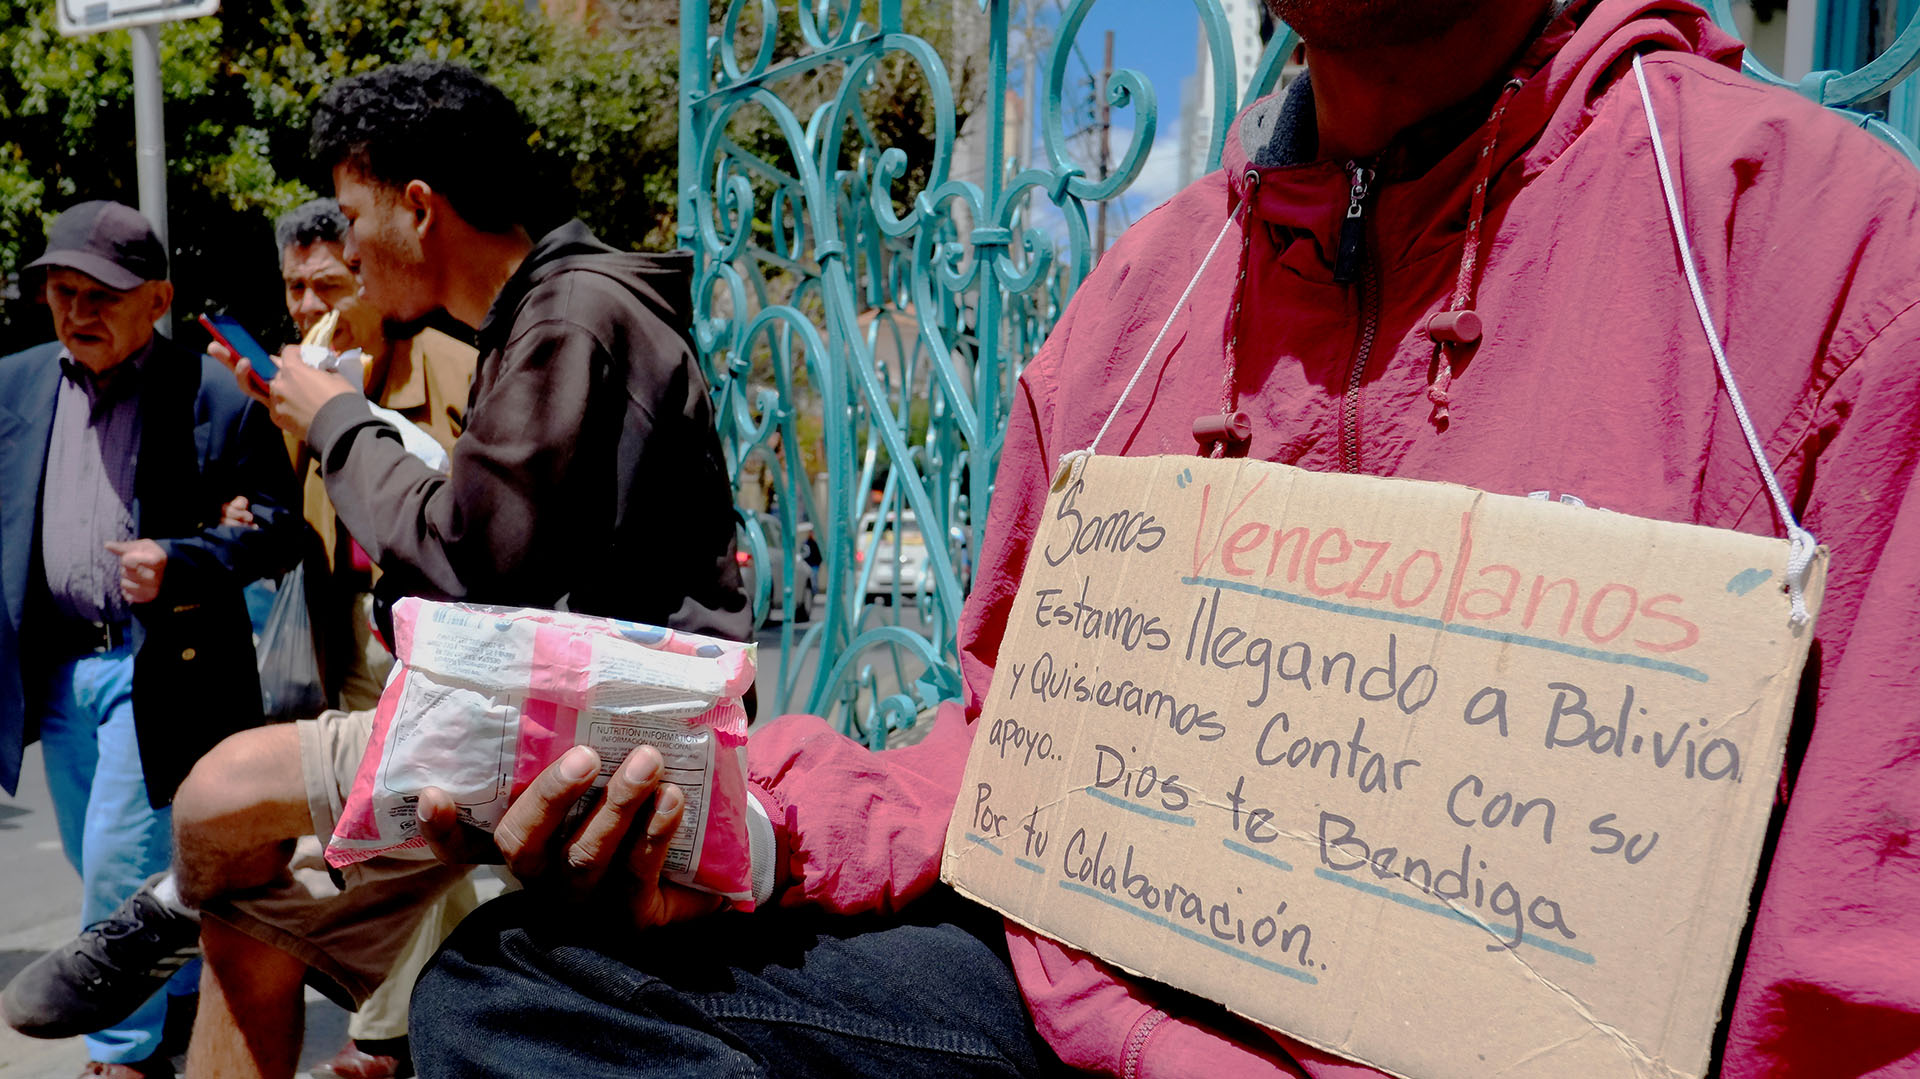 Somos "Venezolanos"
Estamos llegando a Bolivia
y Quisieramos Contar con su
apoyo.. Dios te Bendiga
Por tu Colaboración..
NUTRITION INFORMATION
INFORMACIÓN NUTRICIONAL